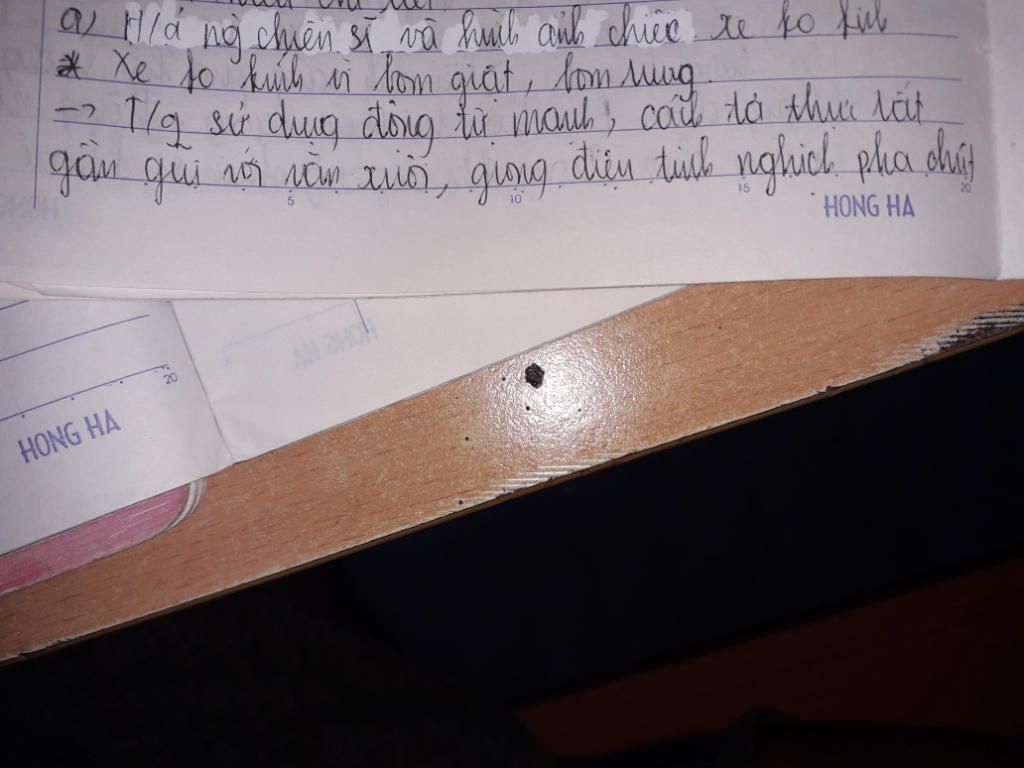 a) H/á ng chiến sĩ và hình ảnh chiếc xe ko kính
* Xe ko kính vì bom giật, bom rung.
-> T/g sử dụng động từ mạnh, cách tả thực rất
gần gũi với văn xuôi, giọng điệu tinh nghịch pha chút
5 10 15 20
HONG HA
20
HONG HA